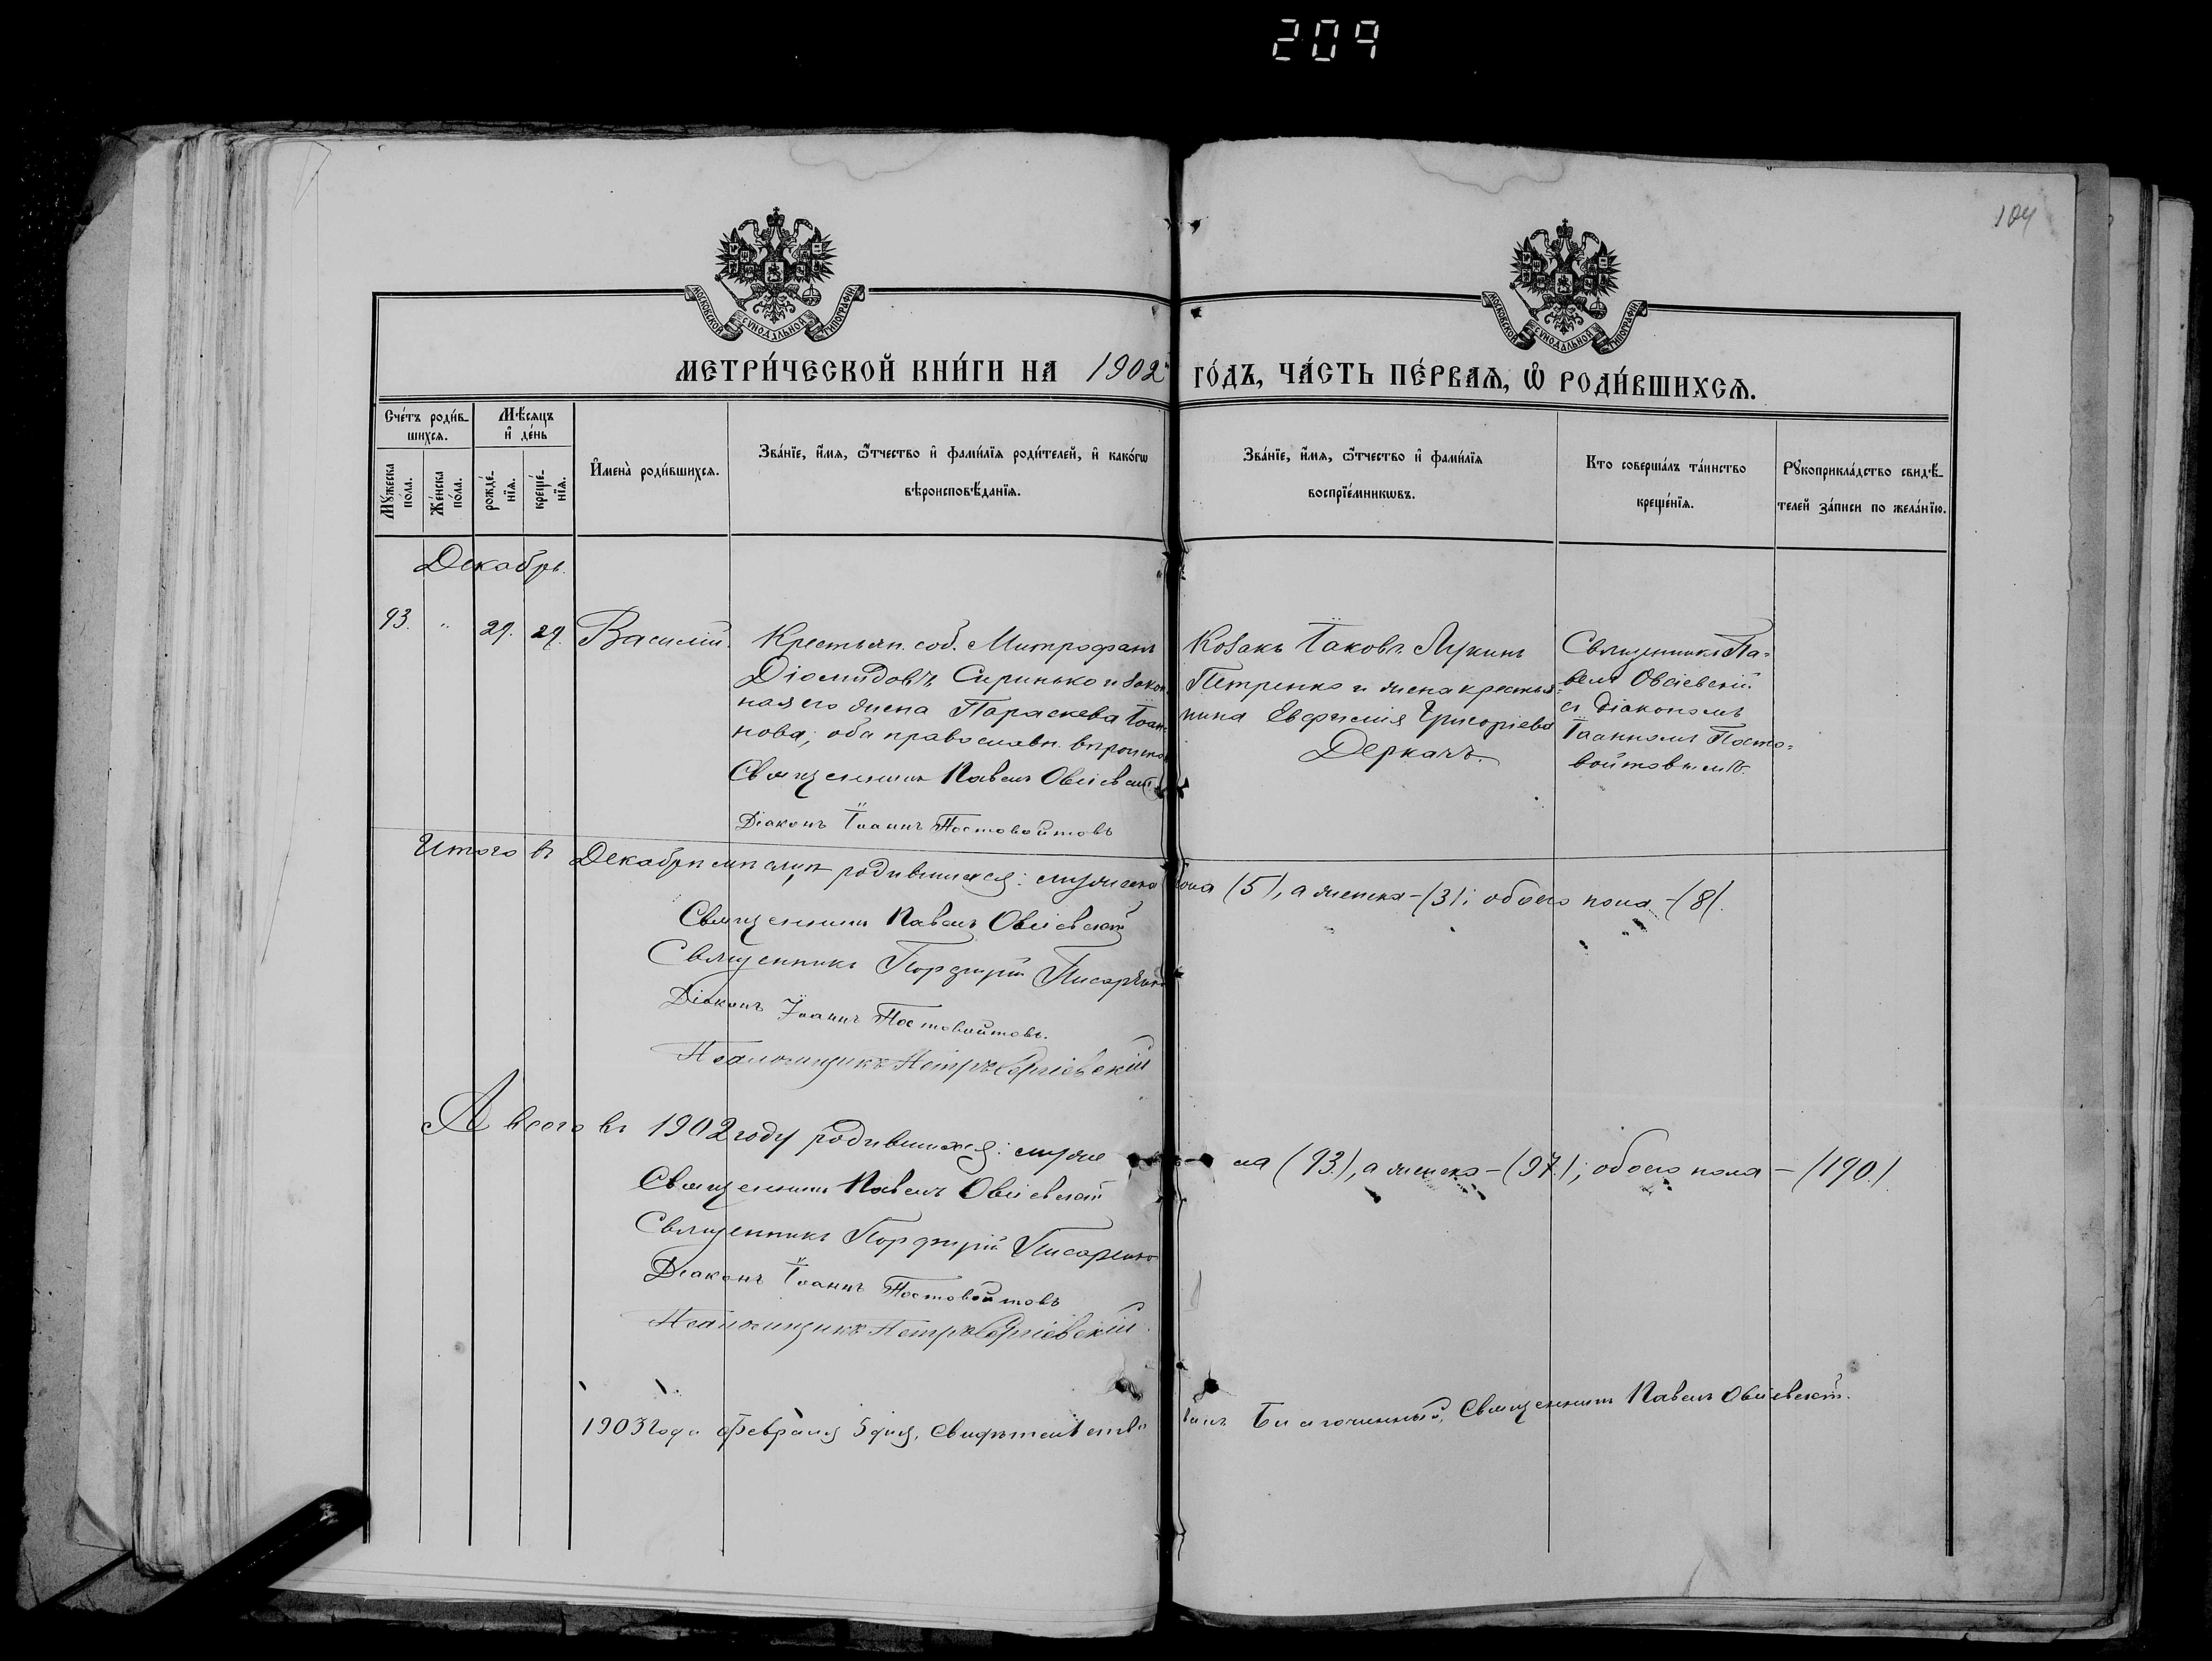 209
104
МОСКОВСКОЙ СУНОДАЛЬНОЙ ТИПОГРАФІИ
МОСКОВСКОЙ СУНОДАЛЬНОЙ ТИПОГРАФІИ
МЕТРИ́ЧЕСКОЙ КНИ́ГИ НА 1902 ГО́ДЪ, ЧА́СТЬ ПЕ́РВАѦ, Ѡ҆ РОДИ́ВШИХСѦ.
Сче́тъ роди́в-
шихсѧ.
Мѣ́сѧцъ
и҆ де́нь
Мꙋ́жеска
по́ла.
Же́нска
по́ла.
рожде́-
нїѧ.
креще́-
нїѧ.
И҆мена̀ роди́вшихсѧ.
Зва́нїе, и҆́мѧ, ѻ҆́тчество и҆ фами́лїѧ роди́телей, и҆ како́гѡ
вѣроисповѣ́данїѧ.
Зва́нїе, и҆́мѧ, ѻ҆́тчество и҆ фами́лїѧ
воспрїе́мникѡвъ.
Кто соверша́лъ та́инство
креще́нїѧ.
Рꙋкоприкла́дство свидѣ́-
телей за́писи по жела́нїю.
Декабрь.
93. " 29. 29. Василій.
Крестьян. соб. Митрофанъ
Діомидовъ Сиринько и закон-
ная его жена Параскева Іоан-
нова; оба православн. вѣроиспов.
Священникъ Павелъ Овсіевскій
Діаконъ Іоаннъ Постовойтовъ
Козакъ Іаковъ Лукинъ
Петренко и жена крестья-
нина Евфимія Григоріева
Деркачъ.
Священникъ Па-
велъ Овсіевскій
съ діакономъ
Іоанномъ Посто-
войтовымъ.
Итого въ Декабрѣ мѣсяцѣ родившихся: мужеска пола (5), а женска - (3); обоего пола - (8).
Священникъ Павелъ Овсіевскій
Священникъ Порфирій Писаренко
Діаконъ Іоаннъ Постовойтовъ.
Псаломщикъ Петръ Сергіевскій
А всего въ 1902 году родившихся: муже ла (93.), а женска - (97.); обоего пола - (190.)
Священникъ Павелъ Овсіевскій
Священникъ Порфирій Писаренко
Діаконъ Іоаннъ Постовойтовъ
Псаломщикъ Петръ Сергіевскій.
1903 года февраля 5 дня, свидѣтельствовалъ Благочинный, Священникъ Павелъ Овсіевскій.